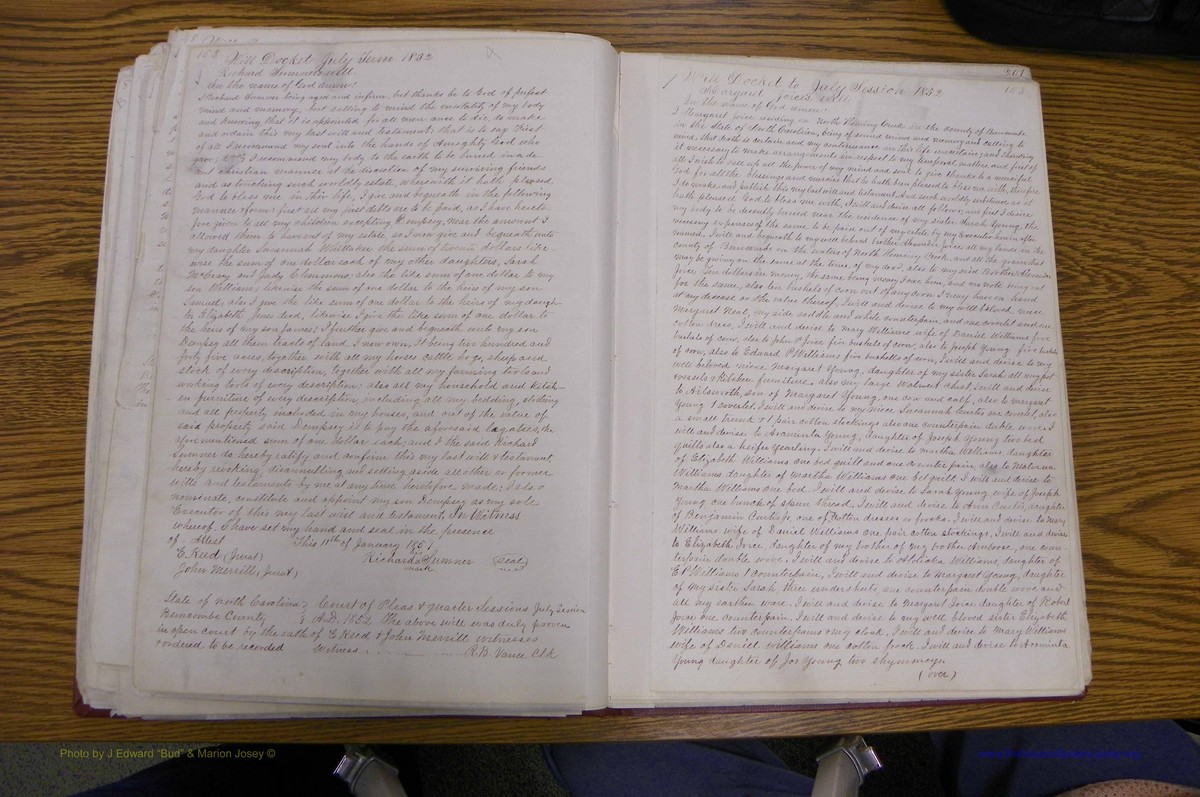 Will Docket July Term 1852
Richard Sumner will.
In the name of God amen.
I Richard Sumner being aged and infirm, but thanks be to God of perfect
mind and memory, but calling to mind the mortality of my body
and knowing that it is appointed for all men once to die, do make
and ordain this my last will and testament; that is to say First
of all I recommend my soul into the hands of Almighty God who
gave; I recommend my body to the earth to be buried in a de-
cent christian manner at the discretion of my surviving friends
and as touching such worldly estate, wherewith it hath pleased
God to bless me in this life, I give and bequeath in the following
manner & form: first all my just debts are to be paid, as I have hereto-
fore given to all my children excepting Dempsey, near the amount I
allowed them to have out of my estate, so I now give and bequeath unto
my daughter Savannah Whittaker the sum of twenty dollars like-
wise the sum of one dollar each of my other daughters, Sarah
McCrary and Judy Clemmons; also the like sum of one dollar to my
son William; likewise the sum of one dollar to the heirs of my son
Samuel; also I give the like sum of one dollar to the heirs of my daugh-
ter Elizabeth Jones decd, likewise I give the like sum of one dollar to
the heirs of my son James; I further give and bequeath unto my son
Dempsey all them tracts of land I now own, It being two hundred and
forty five acres, together with all my horses cattle hogs, sheep and
stock of every description, together with all my farming tools and
working tools of every description; also all my household and kitch-
en furniture of every description, including all my bedding, clothing
and all property included in my houses, and out of the value of
said property said Dempsey is to pay the aforesaid legaties, the
afore mentioned sum of one dollar each, and I the said Richard
Sumner do hereby ratify and confirm this my last will & testament,
hereby revoking, disannulling and setting aside all other or former
wills and testaments by me at any time heretofore made; I also
nominate, constitute and appoint my son Dempsey as my sole
Executor of this my last will and testament, In Witness
whereof I have set my hand and seal in the presence
of Attest This 11th of January 1851
E Reed (Jurat) Richard Sumner (seal)
John Merrill (Jurat) mark
State of North Carolina Court of Pleas & quarter Sessions July Session
Buncombe County A.D. 1852. The above will was duly proven
in open court by the oath of E Reed & John Merrill witnesses
& ordered to be recorded Witness R.B. Vance Clk
Will Docket to July Session 1852
Margaret Joice's will
In the name of God amen
I Margaret Joice residing on North Hominy Creek in the county of Buncombe
in the State of North Carolina, being of sound mind and memory and calling to
mind that death is certain and my continuance in this life uncertain; and thinking
it necessary to make arrangements in respect to my temporal matters and first of
all I wish to call up all the powers of my mind and soul to give thanks to a merciful
God for all the blessings and mercies that he hath been pleased to bless me with, therefore
I do make and publish this my last will and testament. And such worldly substance as it
hath pleased God to bless me with, I will and devise as follows, and first I desire
my body to be decently buried near the residence of my sister Sarah Young, the
necessary expenses of the same to be paid out of my estate by my Executor herein after
named. I will and bequeath to my well beloved brother Abraham Joice all my lands in the
county of Buncombe on the waters of North Hominy Creek, and all the grain that
may be growing on the same at the time of my death, also to my said Brother Abraham
Joice ten dollars in money, the same being money I owe him, and no note being out
for the same, also ten bushels of corn out of any corn I may have on hand
at my decease or the value thereof, I will and devise to my well beloved niece
Margaret Neal, my side saddle and whole counterpain, and one coverlet and one
cotton dress, I will and devise to Mary Williams wife of Daniel Williams five
bushels of corn, also to John P Joice five bushels of corn, also to Joseph Young five bushels
of corn, also to Edward P Williams five bushells of corn, I will and devise to my
well beloved niece Margaret Young, daughter of my sister Sarah all my pot
vessels & Kitchen furniture, also my large Walnut chest I will and devise
to Ailsworth, son of Margaret Young, one cow and calf, also to Margaret
Young 1 coverlet. I will and devise to my niece Susannah one coverlet, also
a small trunk & 1 pair cotton stockings also one counterpain double wove. I
will and devise to Araminta Young, daughter of Joseph Young two bed
quilts also a heifer yearling. I will and devise to Martha Williams, daughter
of Elizabeth Williams one bed quilt and one counterpain, also to Malvina
Williams daughter of Martha Williams one bet quilt. I will and devise to
Martha Williams one bed. I will and devise to Sarah Young, wife of Joseph
Young one bunch of spun thread, I will and devise to Ann Curtis, daughter
of Benjamin Curtis Jr, one of cotton dresses or frocks. I will and devise to Mary
Williams wife of Daniel Williams one pair cotton stockings, I will and devise
to Elizabeth Joice, daughter of my brother of my brother Ambrose, one coun-
terpain double wove. I will and devise to Williams, daughter of
E P Williams 1 counterpain, I will and devise to Margaret Young, daughter
of my sister Sarah, three under beds, one counterpain double wove and
all my earthen ware. I will and devise to Margaret Joice daughter of Robert
Joice one counterpain. I will and devise to my well beloved sister Elizabeth
Williams two counterpains & my cloak, I will and devise to Mary Williams
wife of Daniel Williams one cotton frock. I will and devise to Araminta
Young daughter of Jos Young two
(over)
Photo by J Edward "Bud" & Marion Josey ©